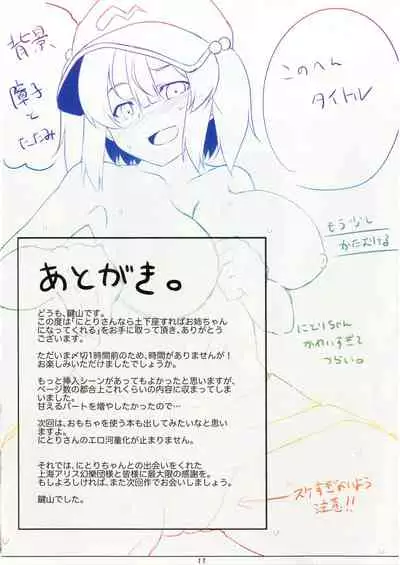 背景
障子と
たたみ
このへん
タイトル
もう少し
かたむける
にとりちゃん
かわいすぎて
つらい。
あとがき。
どうも、鍵山です。
この度は「にとりさんなら土下座すればお姉ちゃん
になってくれる」をお手に取って頂き、ありがとうござ
います。
ただいま〆切1時間前のため、時間がありませんが!
お楽しみいただけましたでしょうか。
もっと挿入シーンがあってもよかったと思いますが、
ページ数の都合上これくらいの内容に収まってしま
いました。
甘えるパートを増やしたかったので…
次回は、おもちゃを使う本も出してみたいなと思い
ますよ。
にとりさんのエロ河童化が止まりません。
それでは、にとりちゃんとの出会いをくれた
上海アリス幻樂団様と皆様に最大限の感謝を。
もしよろしければ、また次回作でお会いしましょう。
鍵山でした。
スケすぎないよう
注意!!
11